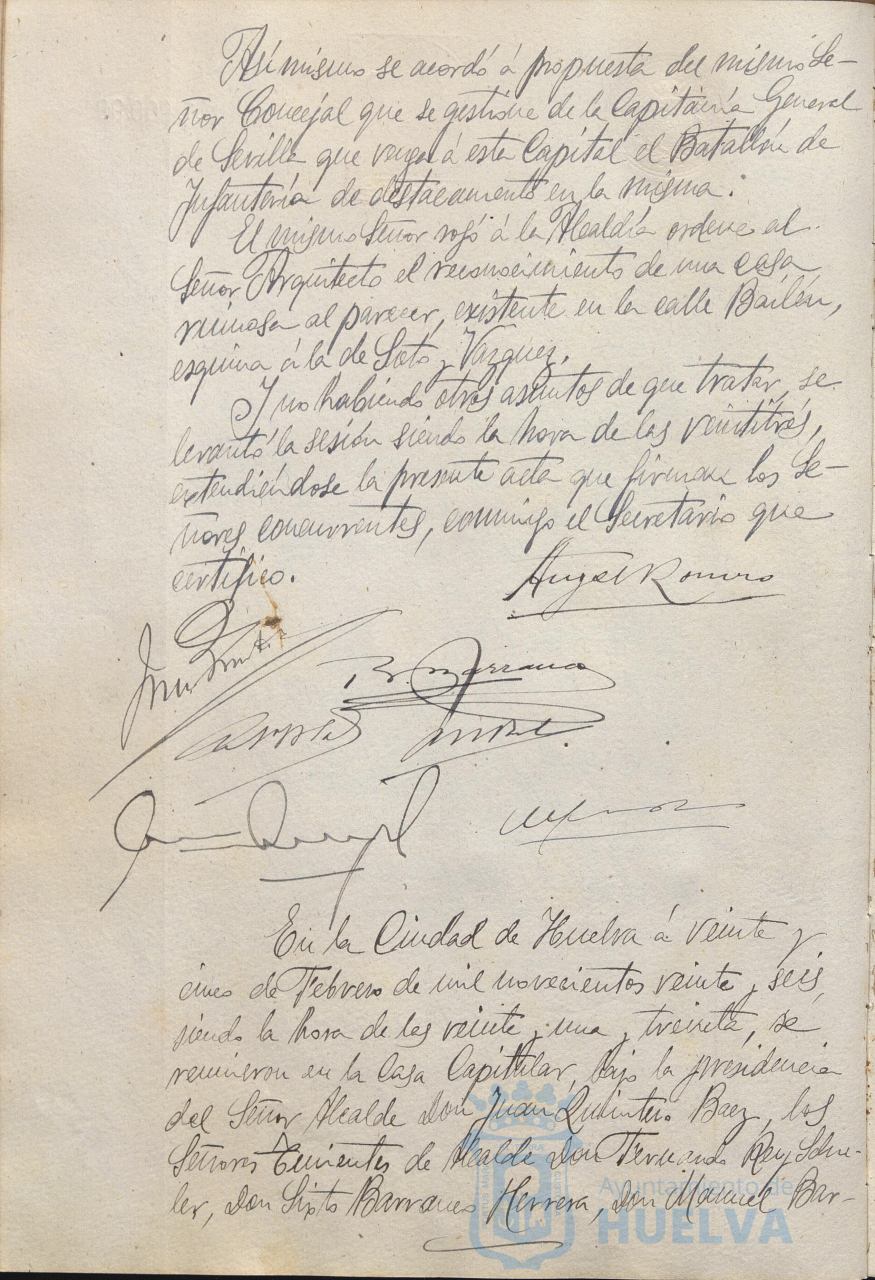 Así mismo se acordó á propuesta del mismo Se-
ñor Concejal que se gestione de la Capitanía General
de Sevilla que venga á esta Capital el Batallón de
Infantería de destacamento en la misma.
El mismo Señor rogó á la Alcaldía ordene al
Señor Arquitecto el reconocimiento de una casa
ruinosa al parecer, existente en la calle Bailén,
esquina á la de Soto y Vázquez.
Y no habiendo otros asuntos de que tratar, se
levantó la sesión siendo la hora de las veintitrés,
extendiéndose la presente acta que firman los Se-
ñores concurrentes, conmigo el Secretario que
certifico.
Angel Romero
B. Barranco
En la Ciudad de Huelva á veinte y
cinco de Febrero de mil novecientos veinte y seis,
siendo la hora de las veinte y una y treinta, se
reunieron en la Casa Capitular, bajo la presidencia
del Señor Alcalde Don Juan Quintero Baez, los
Señores Tenientes de Alcalde Don Fernando Rey
ler, Don Sixto Barranco Herrera, Don Manuel Bar-
Ayuntamiento de
HUELVA